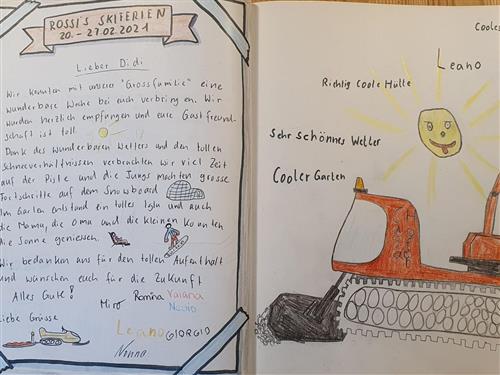 ROSSI'S SKIFERIEN
20. - 27.02.2021
Lieber Didi
Wir konnten mit unserer "Grossfamilie" eine
wunderbare Woche bei euch verbringen. Wir
wurden herzlich empfangen und eure Gastfreund-
schaft ist toll.
Dank des wunderbaren Wetters und den tollen
Schneeverhältnissen verbrachten wir viel Zeit
auf der Piste und die Jungs machten grosse
Fortschritte auf dem Snowboard
Im Garten entstand ein tolles Iglu und auch
die Mamy, die Oma und die kleinen konnten
die Sonne geniessen.
Wir bedanken uns für den tollen Aufenthalt
und wünschen euch für die Zukunft
Alles Gute!
Miro Romina Vaiana
Liebe Grüsse
Leano GIORGIO
Nonna
Cooles
Leano
Richtig Coole Hütte
Sehr schönnes Wetter
Cooler Garten